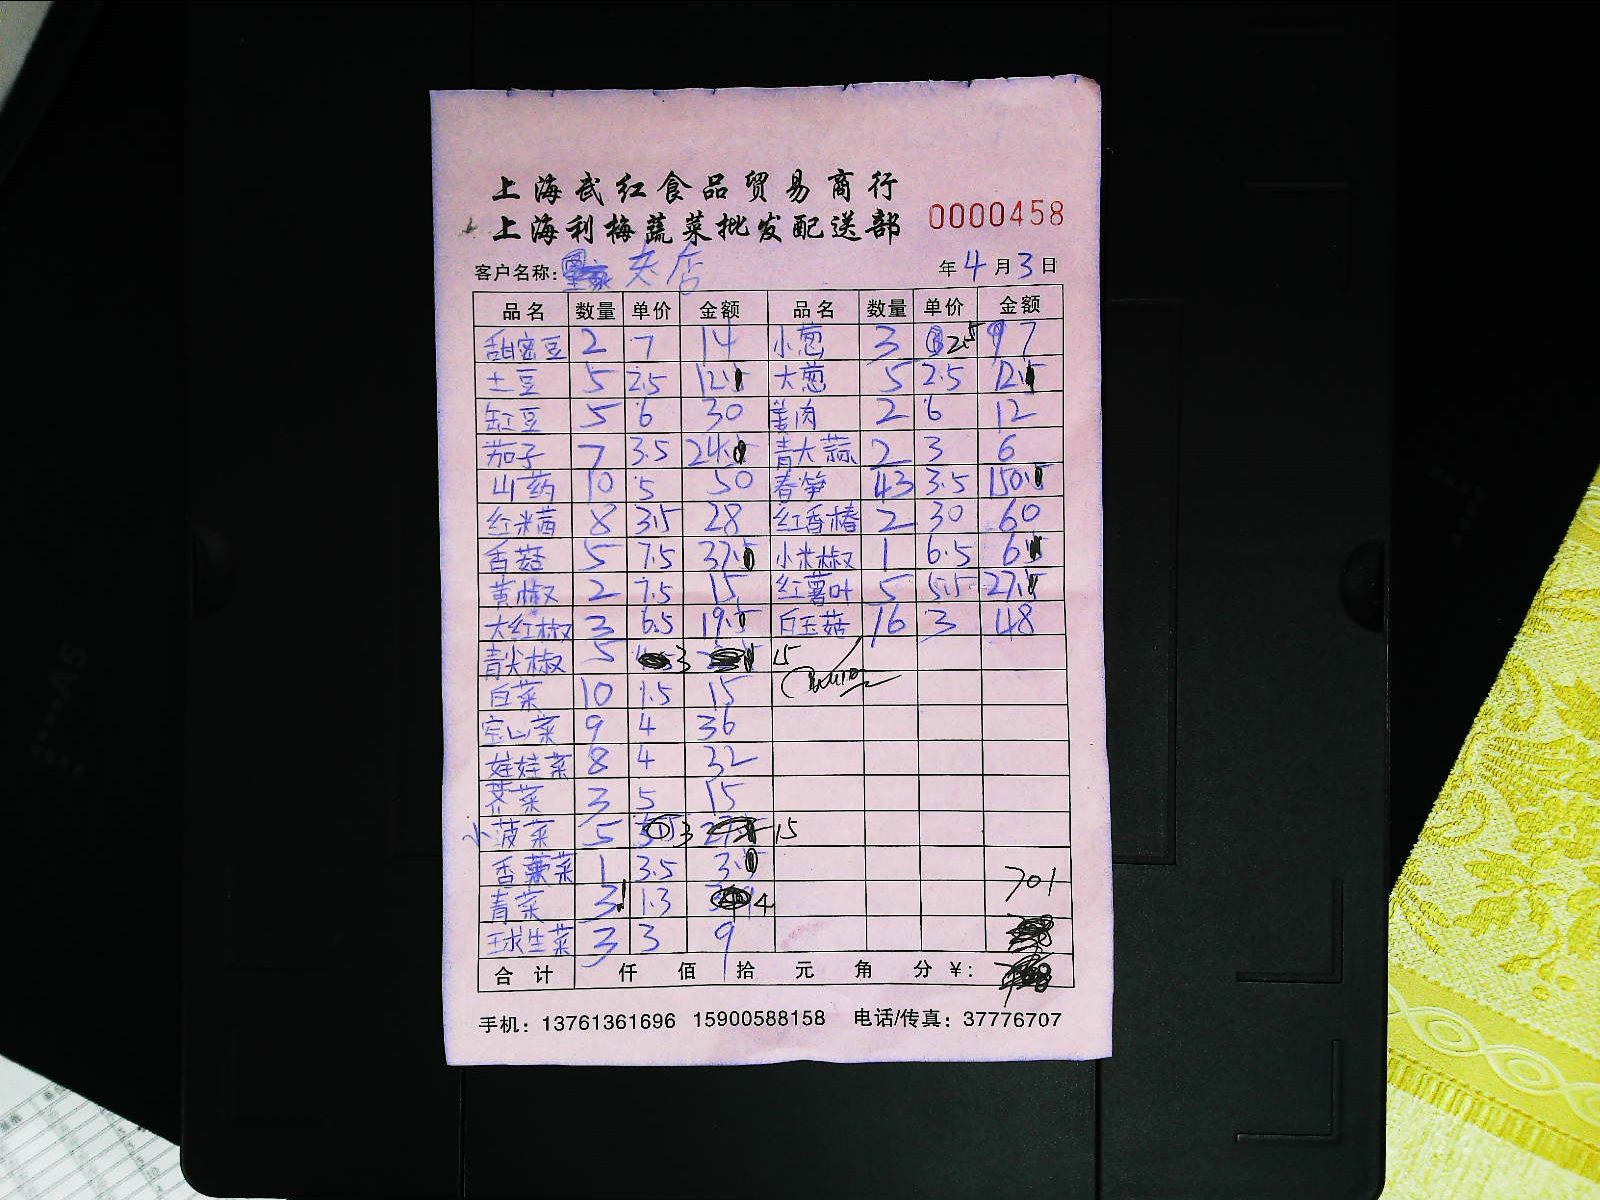 上海武红食品贸易商行
上海利梅蔬菜批发配送部 0000458
客户名称: 夹店 年4月3日
品名 数量 单价 金额 品名 数量 单价 金额
甜密豆 2 7 14 小葱 3 2.5 7
土豆 5 2.5 12 大葱 5 2.5 12
缸豆 5 6 30 姜肉 2 6 12
茄子 7 3.5 24 青大蒜 2 3 6
山药 10 5 50 春笋 43 3.5 150
红米苋 8 3.5 28 红香椿 2 30 60
香菇 5 7.5 37 小米椒 1 6.5 6
黄椒 2 7.5 15 红薯叶 5 5.5 27
大红椒 3 6.5 19 白玉菇 16 3 48
青尖椒 5 3 15
白菜 10 1.5 15
宝山菜 9 4 36
娃娃菜 8 4 32
荠菜 3 5 15
小菠菜 5 3 15
香菜 1 3.5 3
青菜 3 1.3 4
球生菜 3 3 9
701
合计 仟 佰 拾 元 角 分 ¥:
手机: 13761361696 15900588158 电话/传真: 37776707